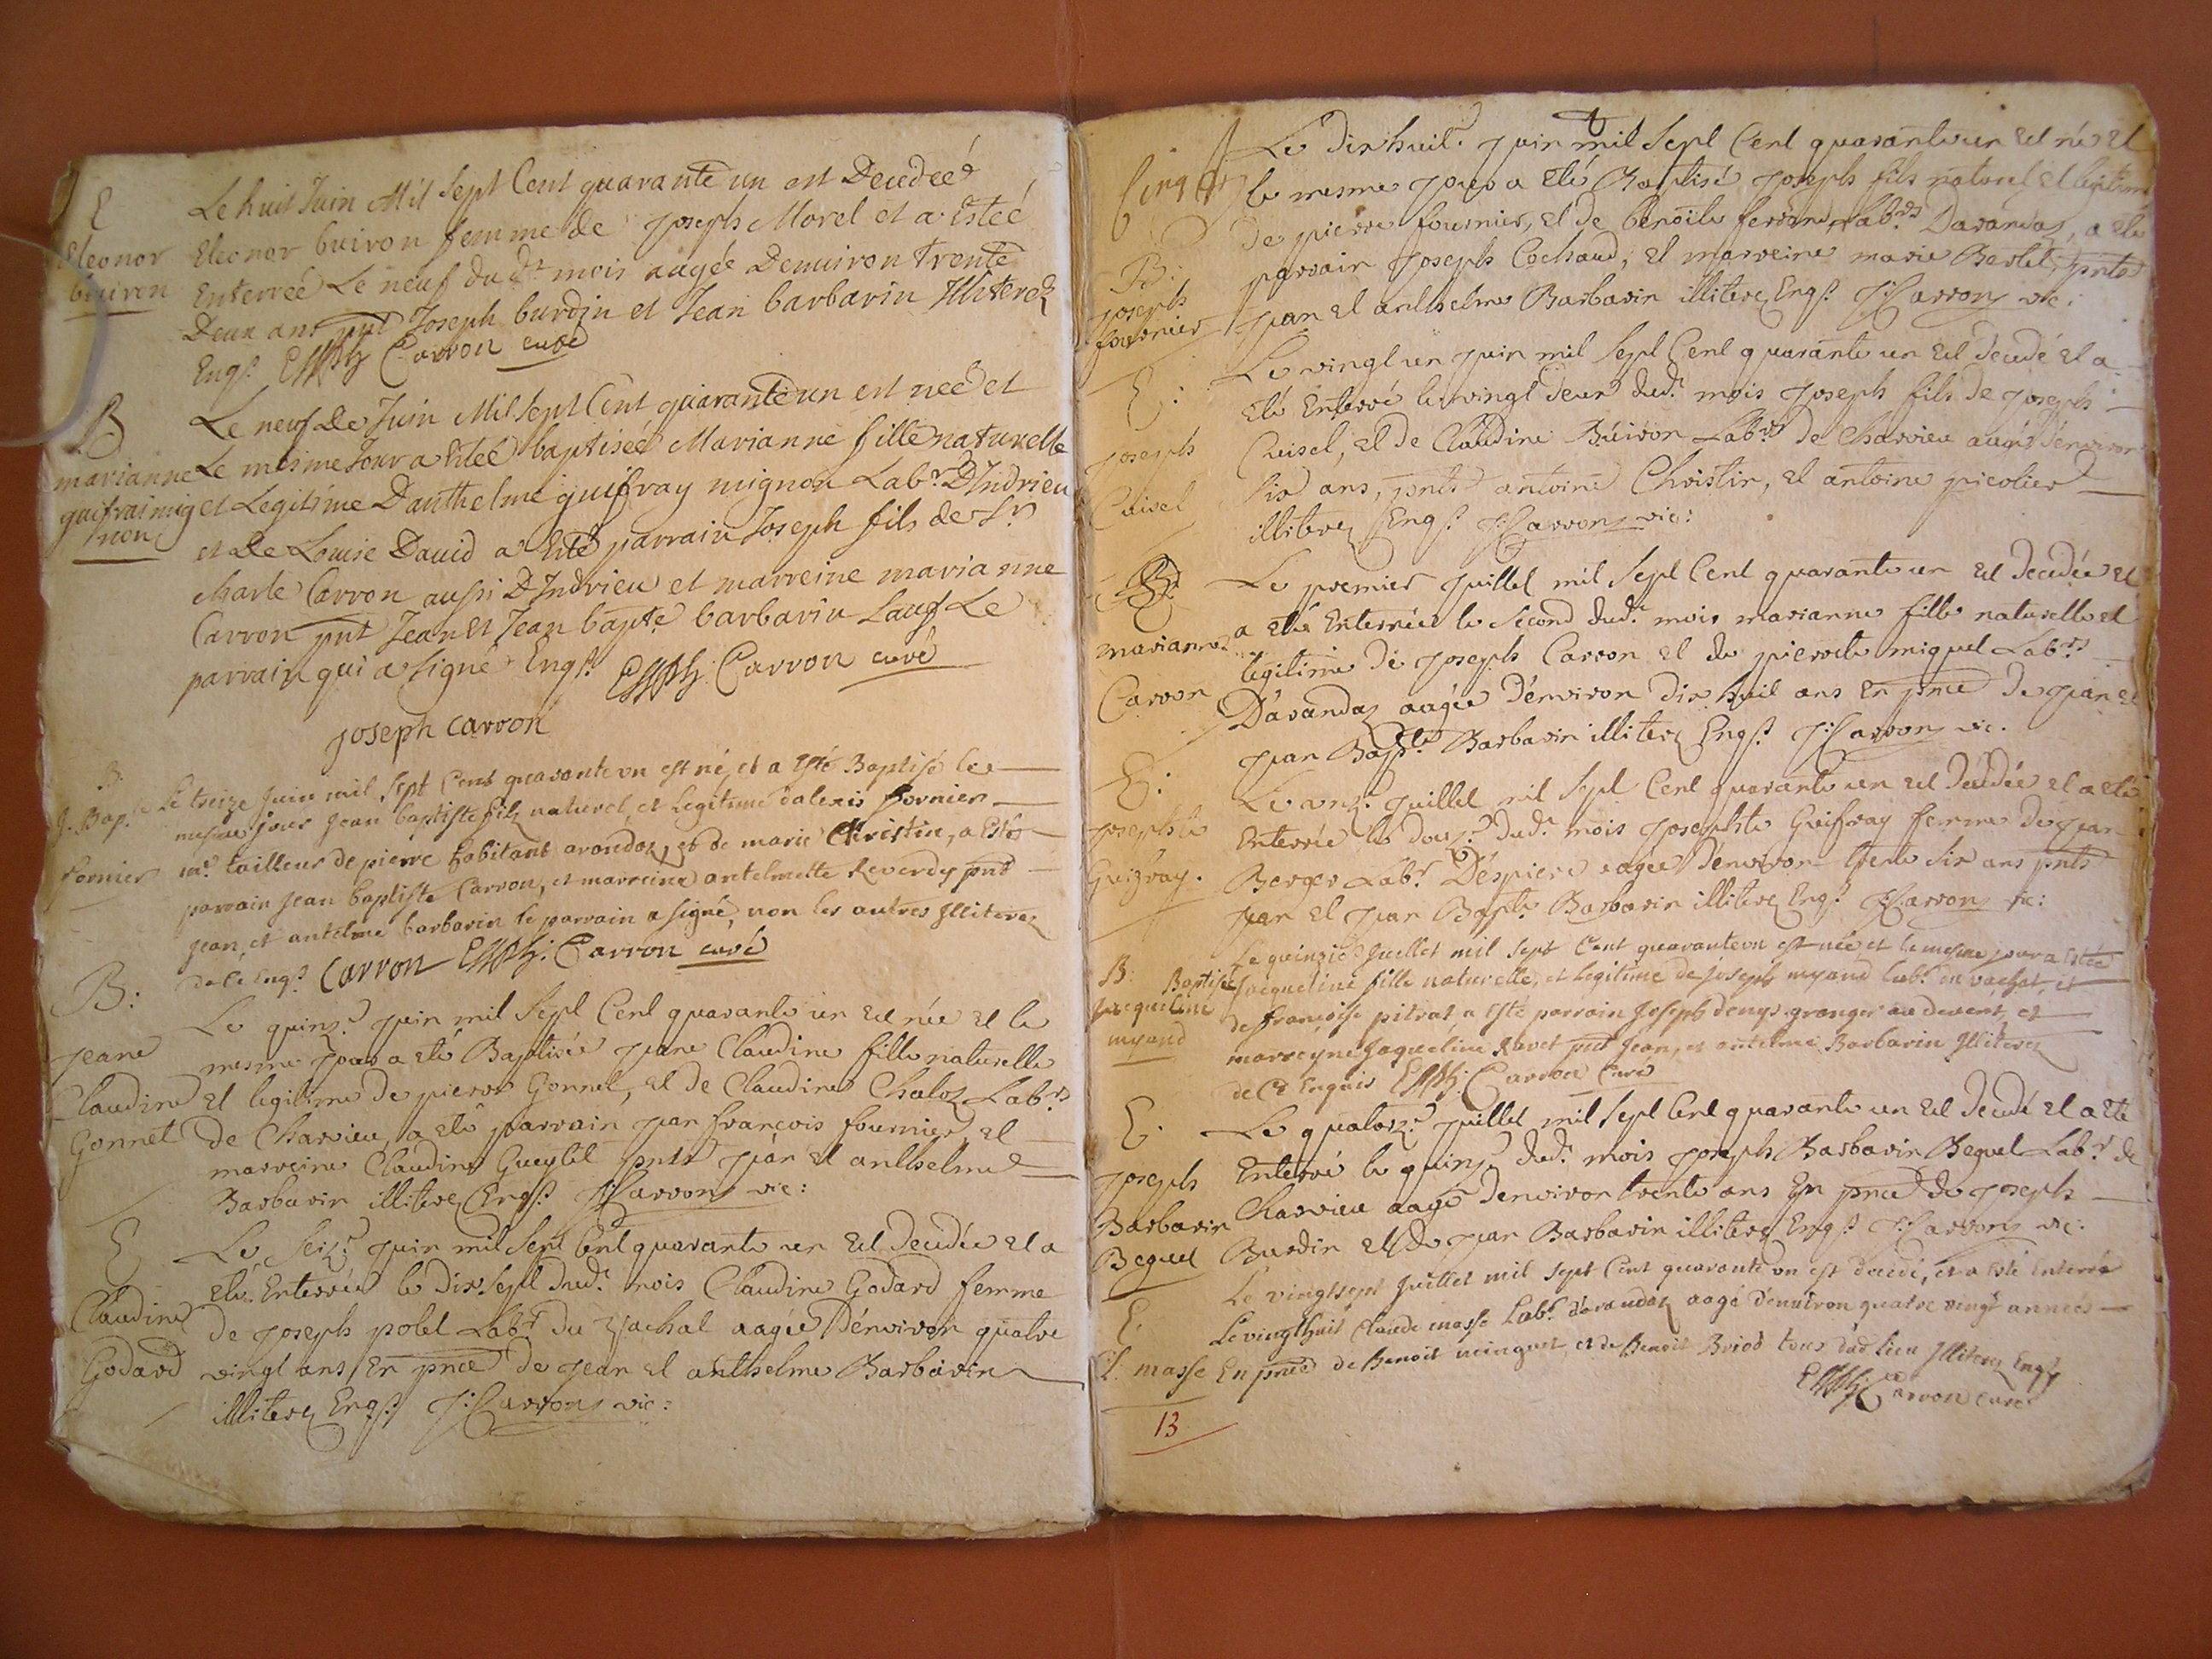 E
Eleonor
buiron
Le huit Juin Mil Sept Cent quarante un est Decedeé
Eleonor buiron femme de Joseph Morel et a Esteé
Enterreé Le neuf du dt mois augée Denuiron Trente
Deux ans pnt Joseph burdin et Jean barbarin Illiterez
Enqs. Carron curé
B
marianne
guifrai mig
non
Le neuf de Juin Mil Sept Cent quarante un est neé et
Le mesme Jour a Esteé baptiseé Marianne fille naturelle
et Legitime Danthelme guifray mignon Labr. D'Indrieu
et de Louise Dauid a Esté parrain Joseph fils de Sr
charle Carron aussi D'Indrieu et marreine marianne
Carron pnt Jean et Jean bapte barbarin Sauf Le
parrain qui a signé Enqs. Carron curé
joseph carron
B.
J. Bap.te
Fornier
Le treize Juin mil Sept Cent quarante un est né, et a Esté Baptisé le
mesme jour Jean baptiste filz naturel, et Legitime dalexis fornier
me. tailleur de pierre habitant arandaz, et de marie Christin, a Esté
parrain Jean baptiste Carron, et marreine antelmette Reverdy pnt
Jean, et antelme barbarin le parrain a signé, non les autres Illiterez
de ce Enqs. Carron Carron curé
B:
Jeane
Claudine
Gonnet
Le quinze. Juin mil Sept Cent quarante un est née et le
mesme jour a eté Baptisée Jeane Claudine fille naturelle
et legitime de pierre Gonnet, et de Claudine Chaloz Labrs
de Charvieu, a eté parrain Jean françois fournier, et
marreine Claudine pnts Jean et anthelme
Barbarin illiterez Enqs. J: Carron vic:
E
Claudine
Godard
Le seize. Juin mil Sept Cent quarante un est decedée et a
eté Enterrée le dix sept dud. mois Claudine Godard femme
de Joseph polet Labr du Vachat aagée D'environ quatre
vingt ans, En pnce de Jean et anthelme Barbarin
illiterez Enqs. J: Carron vic:
B:
Joseph
fournier
Le dix huit. Juin mil Sept Cent quarante un est né et
le mesme jour a eté Baptisé Joseph fils naturel et legitime
de pierre fournier, et de benoite ferrand Labrs Darandaz, a eté
parrain Joseph Cochaud, et marreine marie Bertet, pnts
Jean et anthelme Barbarin illiterez Enqs. J: Carron vic:
E:
Joseph
Cuisel
Le vingt un Juin mil Sept Cent quarante un est decedé et a
eté Enterré le vingt deux dud. mois Joseph fils de Joseph
Cuisel, et de Claudine Buiron Labrs de Charvieu aagé d'environ
six ans, pnts antoine Christin, et antoine picolier
illiterez Enqs. J: Carron vic:
E.
marianne
Carron
Le premier Juillet mil Sept Cent quarante un est decedée et
a eté Enterrée le second dud. mois marianne fille naturelle et
legitime de Joseph Carron et de pierrette miguel Labrs
D'arandaz aagée D'environ dix huit ans En pnce de Jean et
Jean Bapte. Barbarin illiterez Enqs. J: Carron vic.
E:
Josephte
Guifray.
Le onze. Juillet mil Sept Cent quarante un est decedée et a eté
Enterrée le douze. dud. mois Josephte Guifray femme de Jean
Berger Labr. aagée D'environ trente six ans pnts
Jean et Jean Bapte. Barbarin illiterez Enqs. J: Carron vic:
B.
Jacqueline
myand
Le quinzie Juillet mil Sept Cent quarante un est née et le mesme jour a Estée
Baptisée Jacqueline fille naturelle, et Legitime de Joseph myand Labr. du vachat, et
de françoise pitrat a Esté parrain Joseph denys granger au devent, et
marreyne Jaqueline Ravet pnt Jean, et antelme Barbarin Illiterez
de Ce Enquis Carron Curé
E.
Joseph
Barbarin
Beguel
Le quatorze. Juillet mil Sept Cent quarante un est decedé et a eté
Enterré le quinze. dud. mois Joseph Barbarin Beguel Labr de
Charvieu aagé denviron trente ans En pnce de Joseph
Burdin et de Jean Barbarin illiterez Enqs. J: Carron vic:
E.
C. masse
Le vingt sept Juillet mil Sept Cent quarante un est decedé, et a Esté Enterré
Le vingthuit Claude masse Labr. d'arandaz aagé d'enuiron quatre vingt anneés
En pnce de Benoit minguet, et de Benoit Briod tous dud Lieu Illiterez Enqs
Carron curé
13